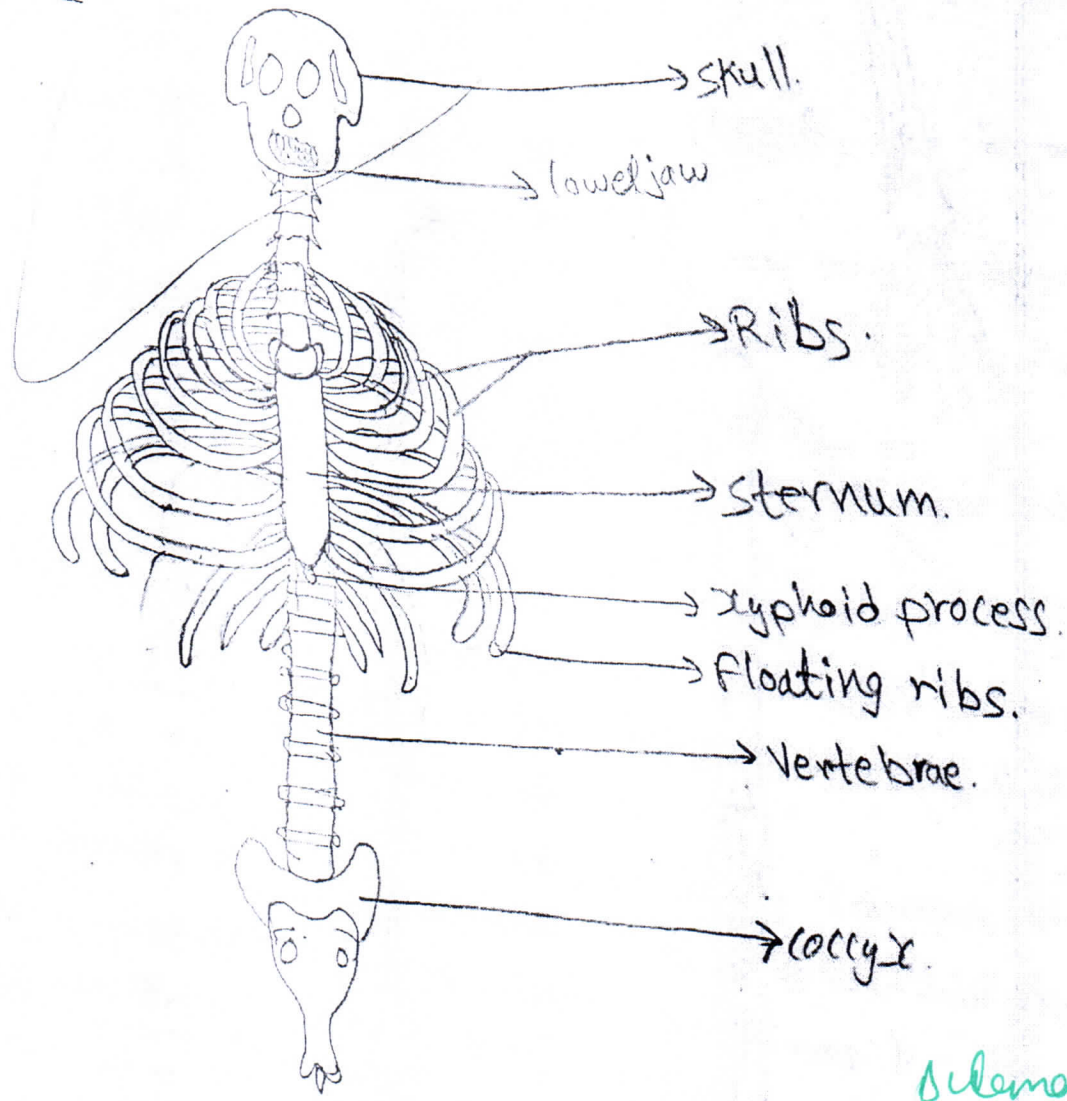 skull.
lowerjaw
Ribs.
sternum.
xyphoid process.
Floating ribs.
Vertebrae.
coccyx.